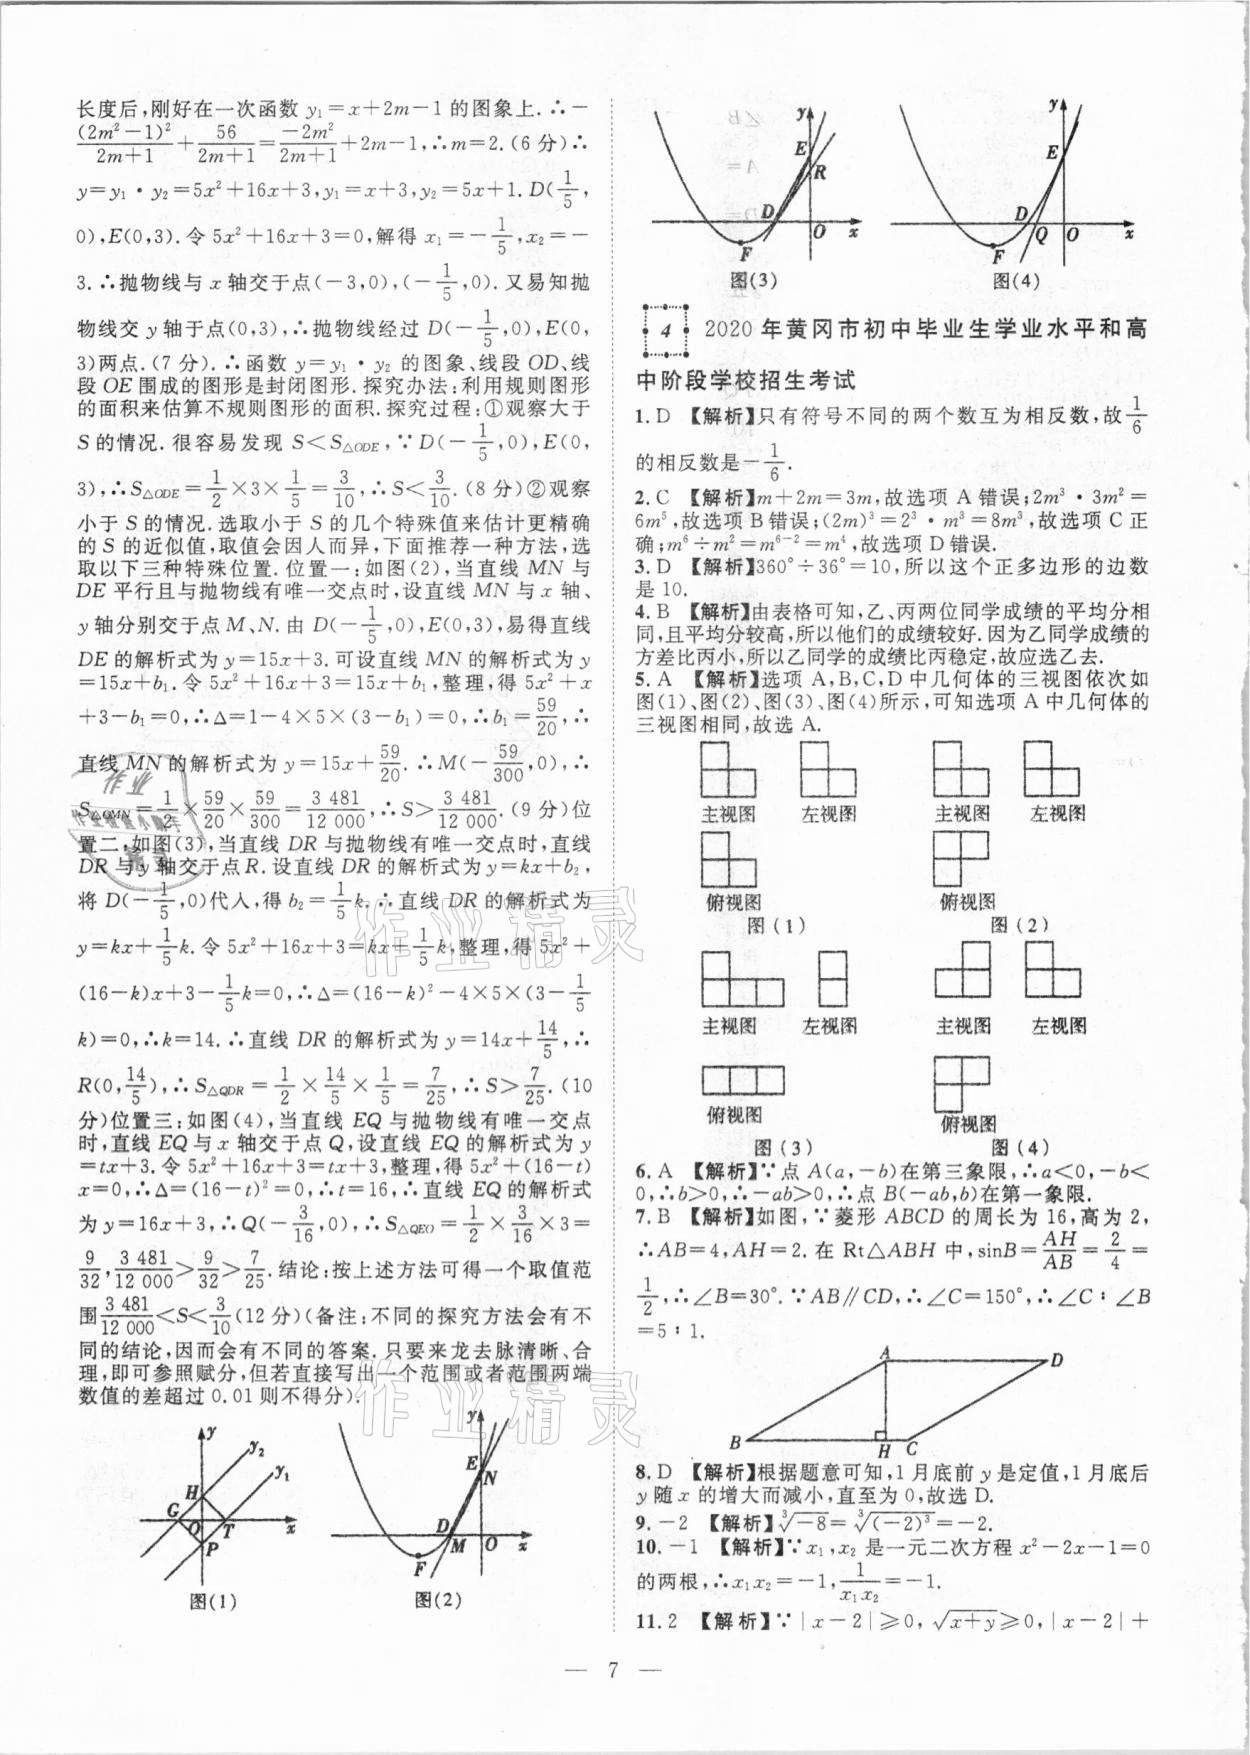 长度后,刚好在一次函数 y₁=x+2m-1 的图象上.∴-
(2m²-1)²/(2m+1)+56/(2m+1)=-2m²/(2m+1)+2m-1,∴m=2.(6 分)∴
y=y₁·y₂=5x²+16x+3,y₁=x+3,y₂=5x+1.D(-1/5,
0),E(0,3).令 5x²+16x+3=0,解得 x₁=-1/5,x₂=-
3.∴抛物线与 x 轴交于点(-3,0),(-1/5,0).又易知抛
物线交 y 轴于点(0,3),∴抛物线经过 D(-1/5,0),E(0,
3)两点.(7 分).∴函数 y=y₁·y₂ 的图象、线段 OD、线
段 OE 围成的图形是封闭图形.探究办法:利用规则图形
的面积来估算不规则图形的面积.探究过程:①观察大于
S 的情况.很容易发现 S<S△ODE,∵D(-1/5,0),E(0,
3),∴S△ODE=1/2×3×1/5=3/10,∴S<3/10.(8 分)②观察
小于 S 的情况.选取小于 S 的几个特殊值来估计更精确
的 S 的近似值,取值会因人而异,下面推荐一种方法,选
取以下三种特殊位置.位置一:如图(2),当直线 MN 与
DE 平行且与抛物线有唯一交点时,设直线 MN 与 x 轴、
y 轴分别交于点 M、N.由 D(-1/5,0),E(0,3),易得直线
DE 的解析式为 y=15x+3.可设直线 MN 的解析式为 y
=15x+b₁.令 5x²+16x+3=15x+b₁,整理,得 5x²+x
+3-b₁=0,∴Δ=1-4×5×(3-b₁)=0,∴b₁=59/20,∴
直线 MN 的解析式为 y=15x+59/20.∴M(-59/300,0),∴
S△OMN=1/2×59/20×59/300=3 481/12 000,∴S>3 481/12 000.(9 分)位
置二,如图(3),当直线 DR 与抛物线有唯一交点时,直线
DR 与 y 轴交于点 R.设直线 DR 的解析式为 y=kx+b₂,
将 D(-1/5,0)代人,得 b₂=1/5k.∴直线 DR 的解析式为
y=kx+1/5k.令 5x²+16x+3=kx+1/5k,整理,得 5x²+
(16-k)x+3-1/5k=0,∴Δ=(16-k)²-4×5×(3-1/5
k)=0,∴k=14.∴直线 DR 的解析式为 y=14x+14/5,∴
R(0,14/5),∴S△QDR=1/2×14/5×1/5=7/25,∴S>7/25.(10
分)位置三:如图(4),当直线 EQ 与抛物线有唯一交点
时,直线 EQ 与 x 轴交于点 Q,设直线 EQ 的解析式为 y
=tx+3.令 5x²+16x+3=tx+3,整理,得 5x²+(16-t)
x=0,∴Δ=(16-t)²=0,∴t=16,∴直线 EQ 的解析式
为 y=16x+3,∴Q(-3/16,0),∴S△QEO=1/2×3/16×3=
9/32,3 481/12 000>9/32>7/25.结论:按上述方法可得一个取值范
围3 481/12 000<S<3/10(12 分)(备注:不同的探究方法会有不
同的结论,因而会有不同的答案.只要来龙去脉清晰、合
理,即可参照赋分,但若直接写出一个范围或者范围两端
数值的差超过 0.01 则不得分).
y y₂ y₁ H G O T x P
图(1)
y E N D M O x F
图(2)
y E R D O x F
图(3)
y E D Q O x F
图(4)
4 2020 年黄冈市初中毕业生学业水平和高
中阶段学校招生考试
1. D 【解析】只有符号不同的两个数互为相反数,故1/6
的相反数是-1/6.
2. C 【解析】m+2m=3m,故选项 A 错误;2m³·3m²=
6m⁵,故选项 B 错误;(2m)³=2³·m³=8m³,故选项 C 正
确;m⁶÷m²=m⁶⁻²=m⁴,故选项 D 错误.
3. D 【解析】360°÷36°=10,所以这个正多边形的边数
是 10.
4. B 【解析】由表格可知,乙、丙两位同学成绩的平均分相
同,且平均分较高,所以他们的成绩较好.因为乙同学成绩的
方差比丙小,所以乙同学的成绩比丙稳定,故应选乙去.
5. A 【解析】选项 A,B,C,D 中几何体的三视图依次如
图(1)、图(2)、图(3)、图(4)所示,可知选项 A 中几何体的
三视图相同,故选 A.
主视图 左视图 主视图 左视图
俯视图 俯视图
图(1) 图(2)
主视图 左视图 主视图 左视图
俯视图 俯视图
图(3) 图(4)
6. A 【解析】∵点 A(a,-b)在第三象限,∴a<0,-b<
0,∴b>0,∴-ab>0,∴点 B(-ab,b)在第一象限.
7. B 【解析】如图,∵菱形 ABCD 的周长为 16,高为 2,
∴AB=4,AH=2.在 Rt△ABH 中,sinB=AH/AB=2/4=
1/2,∴∠B=30°.∵AB∥CD,∴∠C=150°,∴∠C∶∠B
=5∶1.
A D
B H C
8. D 【解析】根据题意可知,1 月底前 y 是定值,1 月底后
y 随 x 的增大而减小,直至为 0,故选 D.
9. -2 【解析】∛-8=∛(-2)³=-2.
10. -1 【解析】∵x₁,x₂ 是一元二次方程 x²-2x-1=0
的两根,∴x₁x₂=-1,1/(x₁x₂)=-1.
11. 2 【解析】∵|x-2|≥0,√(x+y)≥0,|x-2|+
— 7 —
作业精灵
作业精灵